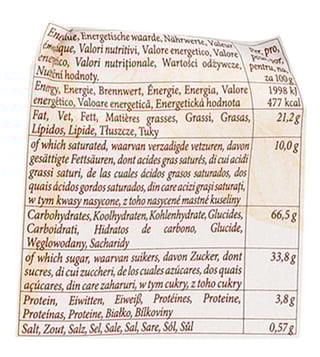 Energie, Energetische waarde, Nährwerte, Valeur
énergétique, Valori nutritivi, Valore energetico, Valore
energético, Valori nutriționale, Wartości odżywcze,
Nutričné hodnoty.
Per, pro,
pour, por,
pentru, na,
za 100 g
Energy, Energie, Brennwert, Énergie, Energia, Valore
energético, Valoare energetică, Energetická hodnota
1998 kJ
477 kcal
Fat, Vet, Fett, Matières grasses, Grassi, Grasas,
Lípidos, Lipide, Tłuszcze, Tuky
21,2g
of which saturated, waarvan verzadigde vetzuren, davon
gesättigte Fettsäuren, dont acides gras saturés, di cui acidi
grassi saturi, de las cuales ácidos grasos saturados, dos
quais ácidos gordos saturados, din care acizi grași saturați,
w tym kwasy nasycone, z toho nasycené mastné kyseliny
10,0 g
Carbohydrates, Koolhydraten, Kohlenhydrate, Glucides,
Carboidrati, Hidratos de carbono, Glucide,
Węglowodany, Sacharidy
66,5 g
of which sugar, waarvan suikers, davon Zucker, dont
sucres, di cui zuccheri, de los cuales azúcares, dos quais
açúcares, din care zaharuri, w tym cukry, z toho cukry
33,8 g
Protein, Eiwitten, Eiweiß, Protéines, Proteine,
Proteínas, Proteine, Białko, Bílkoviny
3,8 g
Salt, Zout, Salz, Sel, Sale, Sal, Sare, Sól, Sůl
0,57 g